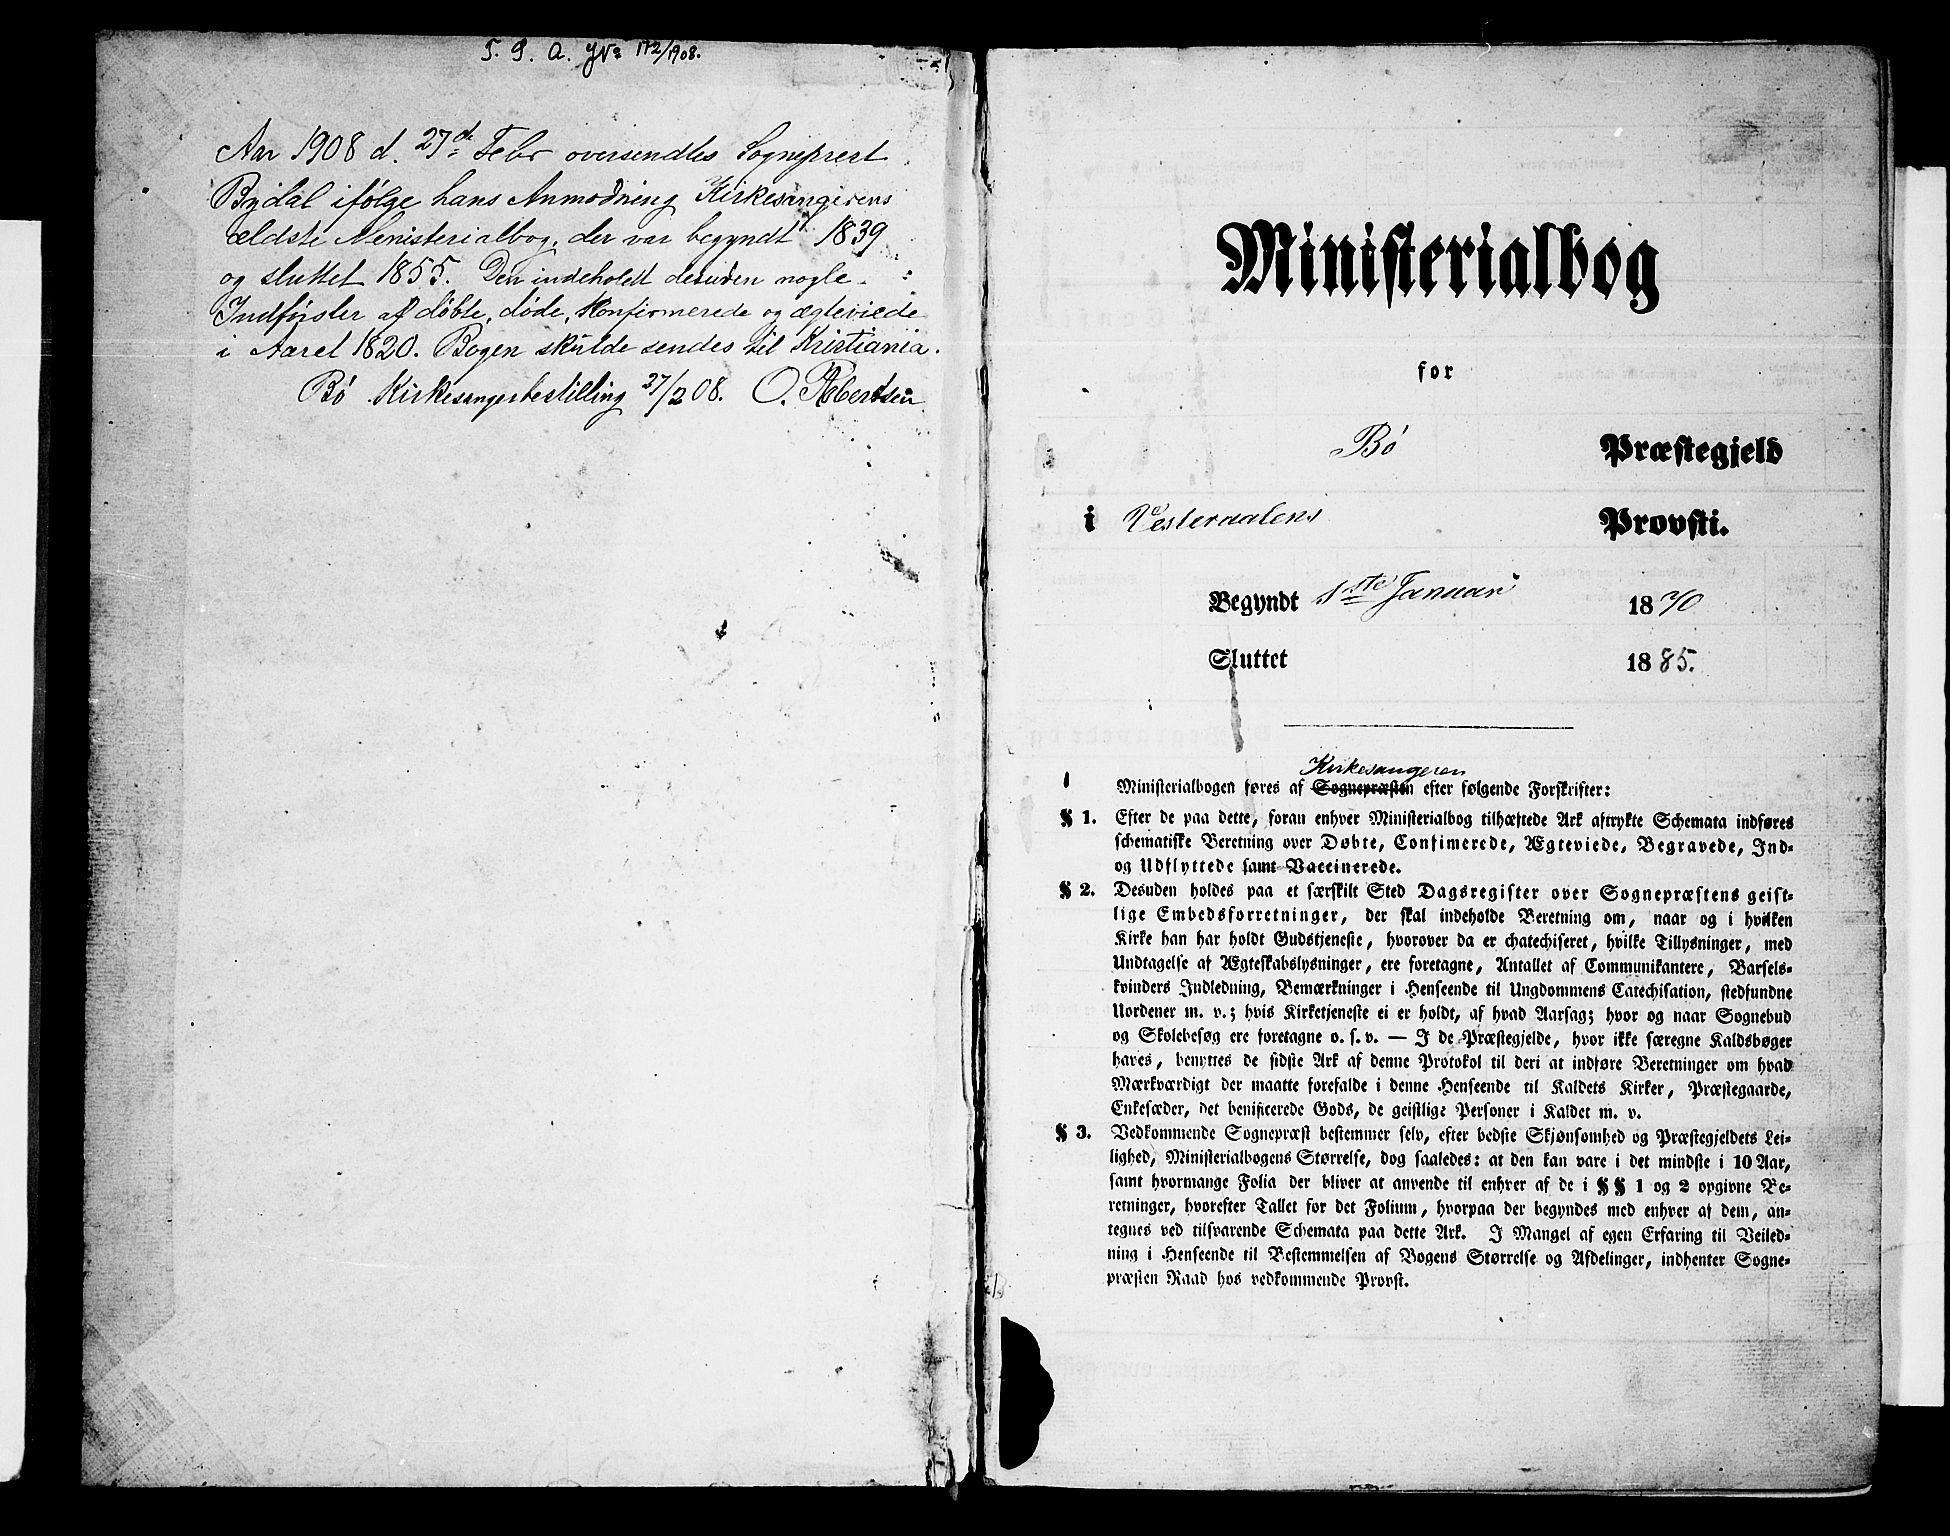 S. P. A. No 172/1908.
Aar 1908 d. 27de Febr oversendtes Sogneprest
Bydal ifølge hans Anmodning Kirkesangerens
ældste Menisterialbog, der var begyndt 1839
og sluttet 1855. Den indeholdt desuden nogle
Indførsler af døbte, døde, Konfirmerede og ægteviede
i Aaret 1820. Bogen skulde sendes til Kristiania.
Bø Kirkesangerbestilling 27/2 08. O.
Ministerialbog
for
Bø Præstegjeld
i Vesteraalens Provsti.
Begyndt 1ste Januar 1870
Sluttet 1885.
Kirkesangeren
Ministerialbogen føres af Sognepræsten efter følgende Forskrifter:
§ 1. Efter de paa dette, foran enhver Ministerialbog tilhæftede Ark aftrykte Schemata indføres
schematiske Beretning over Døbte, Confimerede, Ægteviede, Begravede, Ind-
og Udflyttede samt Vaccinerede.
§ 2. Desuden holdes paa et særskilt Sted Dagsregister over Sognepræstens geist-
lige Embedsforretninger, der skal indeholde Beretning om, naar og i hvilken
Kirke han har holdt Gudstjeneste, hvorover da er chatechiseret, hvilke Tillysninger, med
Undtagelse af Ægteskabslysninger, ere foretagne, Antallet af Communikantere, Barsels-
kvinders Indledning, Bemærkninger i Henseende til Ungdommens Catechisation, stedfundne
Uordener m. v.; hvis Kirketjeneste ei er holdt, af hvad Aarsag; hvor og naar Sognebud
og Skolebesøg ere foretagne o. s. v. — I de Præstegjelde, hvor ikke særegne Kaldsbøger
haves, benyttes de sidste Ark af denne Protokol til deri at indføre Beretninger om hvad
Mærkværdigt der maatte forefalde i denne Henseende til Kaldets Kirker, Præstegaarde,
Enkesæder, det benificerede Gods, de geistlige Personer i Kaldet m. v.
§ 3. Vedkommende Sognepræst bestemmer selv, efter bedste Skjønsomhed og Præstegjeldets Lei-
lighed, Ministerialbogens Størrelse, dog saaledes: at den kan vare i det mindste i 10 Aar,
samt hvormange Folia der bliver at anvende til enhver af de i § § 1 og 2 opgivne Be-
retninger, hvorefter Tallet for det Folium, hvorpaa der begyndes med enhver af dem, an-
tegnes ved tilsvarende Schemata paa dette Ark. I Mangel af egen Erfaring til Veiled-
ning i Henseende til Bestemmelsen af Bogens Størrelse og Afdelinger, indhenter Sogne-
præsten Raad hos vedkommende Provst.